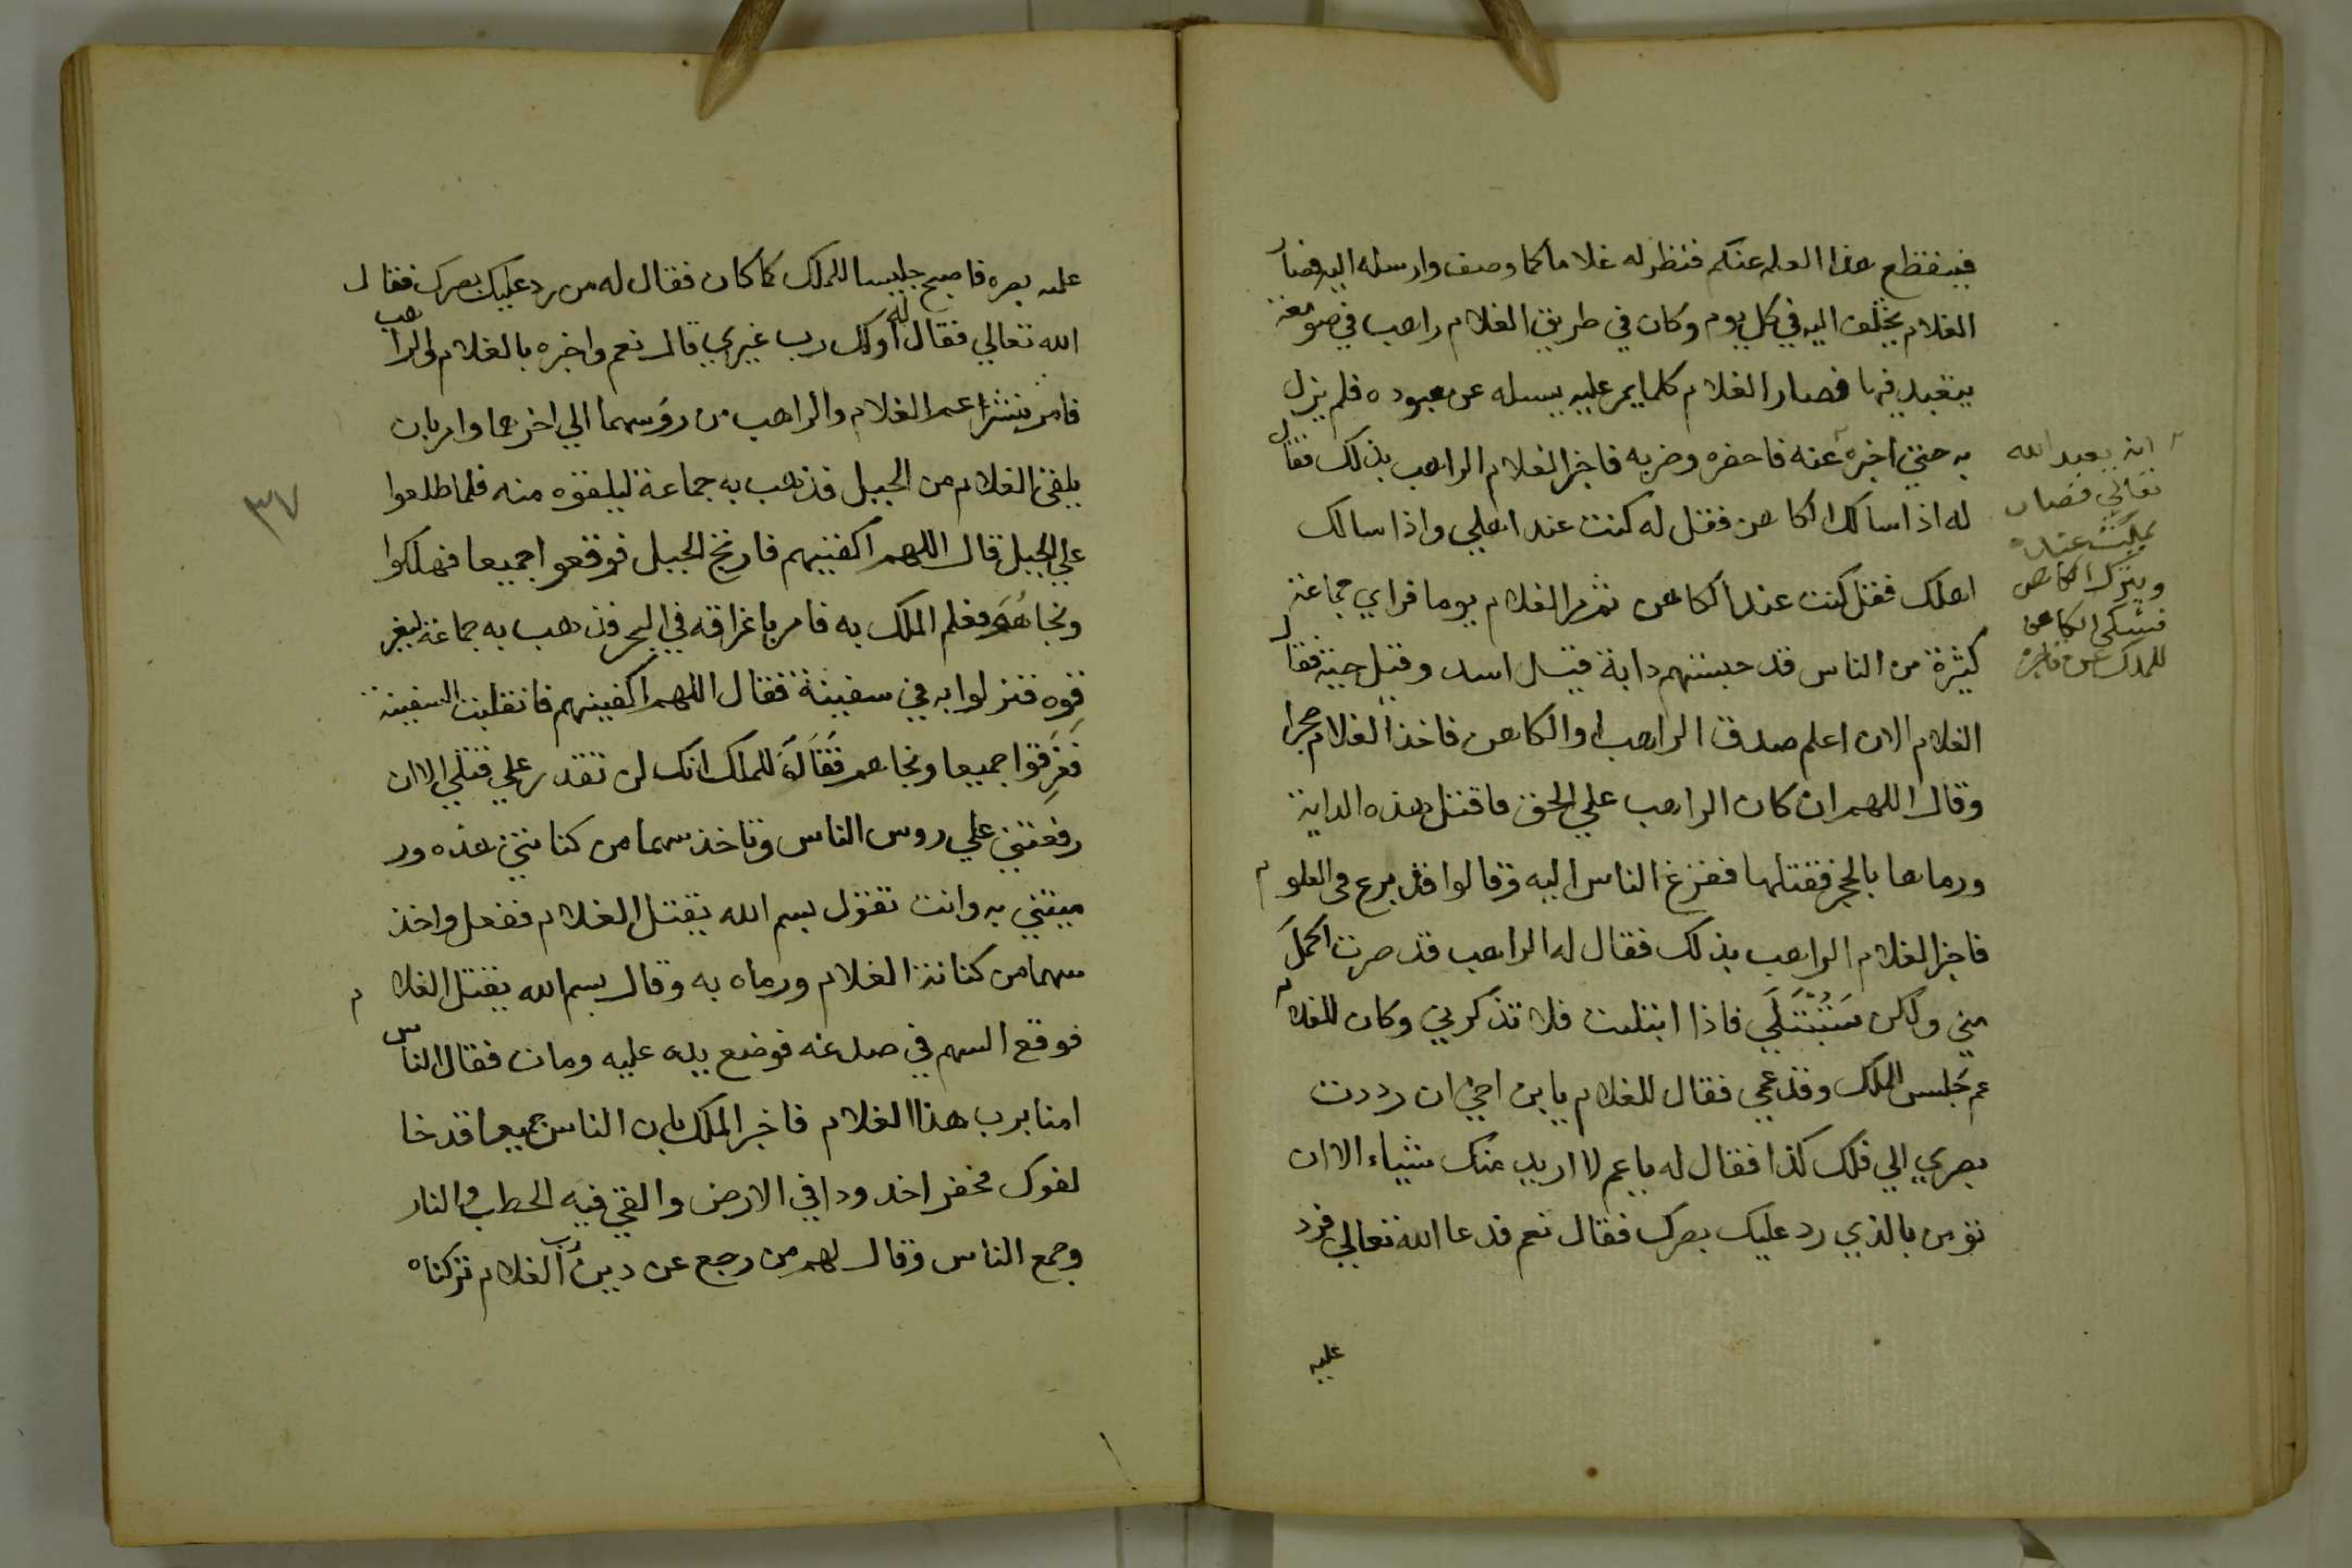 فينقطع هذا العلم عنكم فنظر له غلاما كما وصف وارسله اليه فصار
الغلام يختلف اليه في كل يوم وكان في طريق الغلام راهب في صومعة
يتعبد فيها فصار الغلام كلما يمر عليه يسله عن معبوده فلم يزل
به حتي اخبره عنه فاحضره وضربه فاخبر الغلام الراهب بذلك فقال
له اذا سالك الكاهن فقل له كنت عند اهلي واذا سالك
اهلك فقل كنت عند الكاهن ثم مر الغلام يوما فراي جماعة
كثيرة من الناس قد حبستهم دابة قيل اسد وقيل حية فقال
الغلام الان اعلم صدق الراهب او الكاهن فاخذ الغلام حجرا
وقال اللهم ان كان الراهب علي الحق فاقتل هذه الدابة
ورماها بالحجر فقتلها ففزع الناس اليه وقالوا قد برع في العلوم
فاخبر الغلام الراهب بذلك فقال له الراهب قد صرت اكمل
مني ولكن ستبتلي فاذا ابتليت فلا تذكرني وكان للغلام
عم جليس الملك وقد عمي فقال للغلام يا بن اخي ان رددت
بصري الي فلك كذا فقال له يا عم لا اريد منك شياء الا ان
تؤمن بالذي رد عليك بصرك فقال نعم فدعا الله تعالي فرد
عليه
انه يعبد الله
تعالي فصار
يمكث عنده
ويترك الكاهن
فشكي الكاهن
للملك عن
عليه بصره فاصبح جليسا للملك كما كان فقال له من رد عليك بصرك فقال
الله تعالي فقال له اولك رب غيري قال نعم واخبره بالغلام والراهب
فامر بنشر عم الغلام والراهب من روسهما الي اخرهما وامر بان
يلقي الغلام من الجبل فذهب به جماعة ليلقوه منه فلما طلعوا
علي الجبل قال اللهم اكفنيهم فارتج الجبل فوقعوا جميعا فهلكوا
ونجا هو فعلم الملك به فامر باغراقه في البحر فذهب به جماعة ليغر
قوه فنزلوا به في سفينة فقال اللهم اكفينهم فانقلبت السفينة
فغرقوا جميعا ونجا هم فقال للملك انك لن تقدر علي قتلي الا ان
رفعتني علي روس الناس وتاخذ سهما من كنانتي هذه ور
ميتني به وانت تقول بسم الله يقتل الغلام ففعل واخذ
سهما من كنانة الغلام ورماه به وقال بسم الله يقتل الغلام
فوقع السهم في صدغه فوضع يده عليه ومات فقال الناس
امنا برب هذا الغلام فاخبر الملك بان الناس جميعا قد خا
لفوك فحفر اخدودا في الارض والقي فيه الحطب والنار
وجمع الناس وقال لهم من رجع عن دين رب الغلام تركناه
٣٧